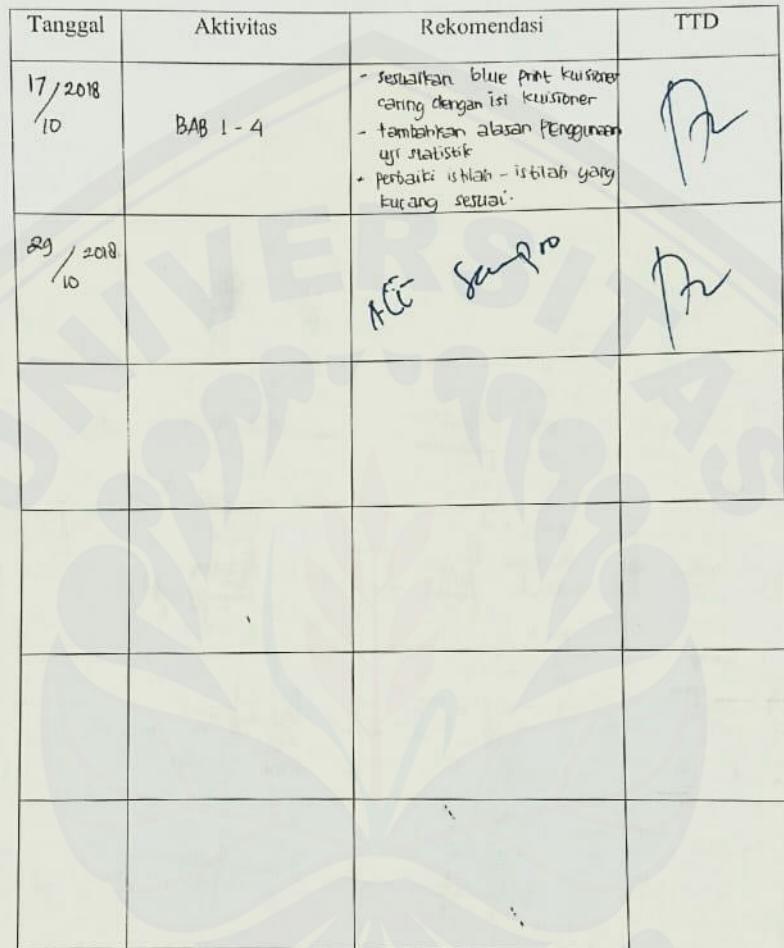 Tanggal Aktivitas Rekomendasi TTD
17/10 2018
BAB 1 - 4
- Sesuaikan blue print kuisioner
caring dengan isi kuisioner
- tambahkan alasan penggunaan
uji statistik
- perbaiki istilah - istilah yang
kurang sesuai.
29/10 2018
ACC Sempro
UNIVERSITAS